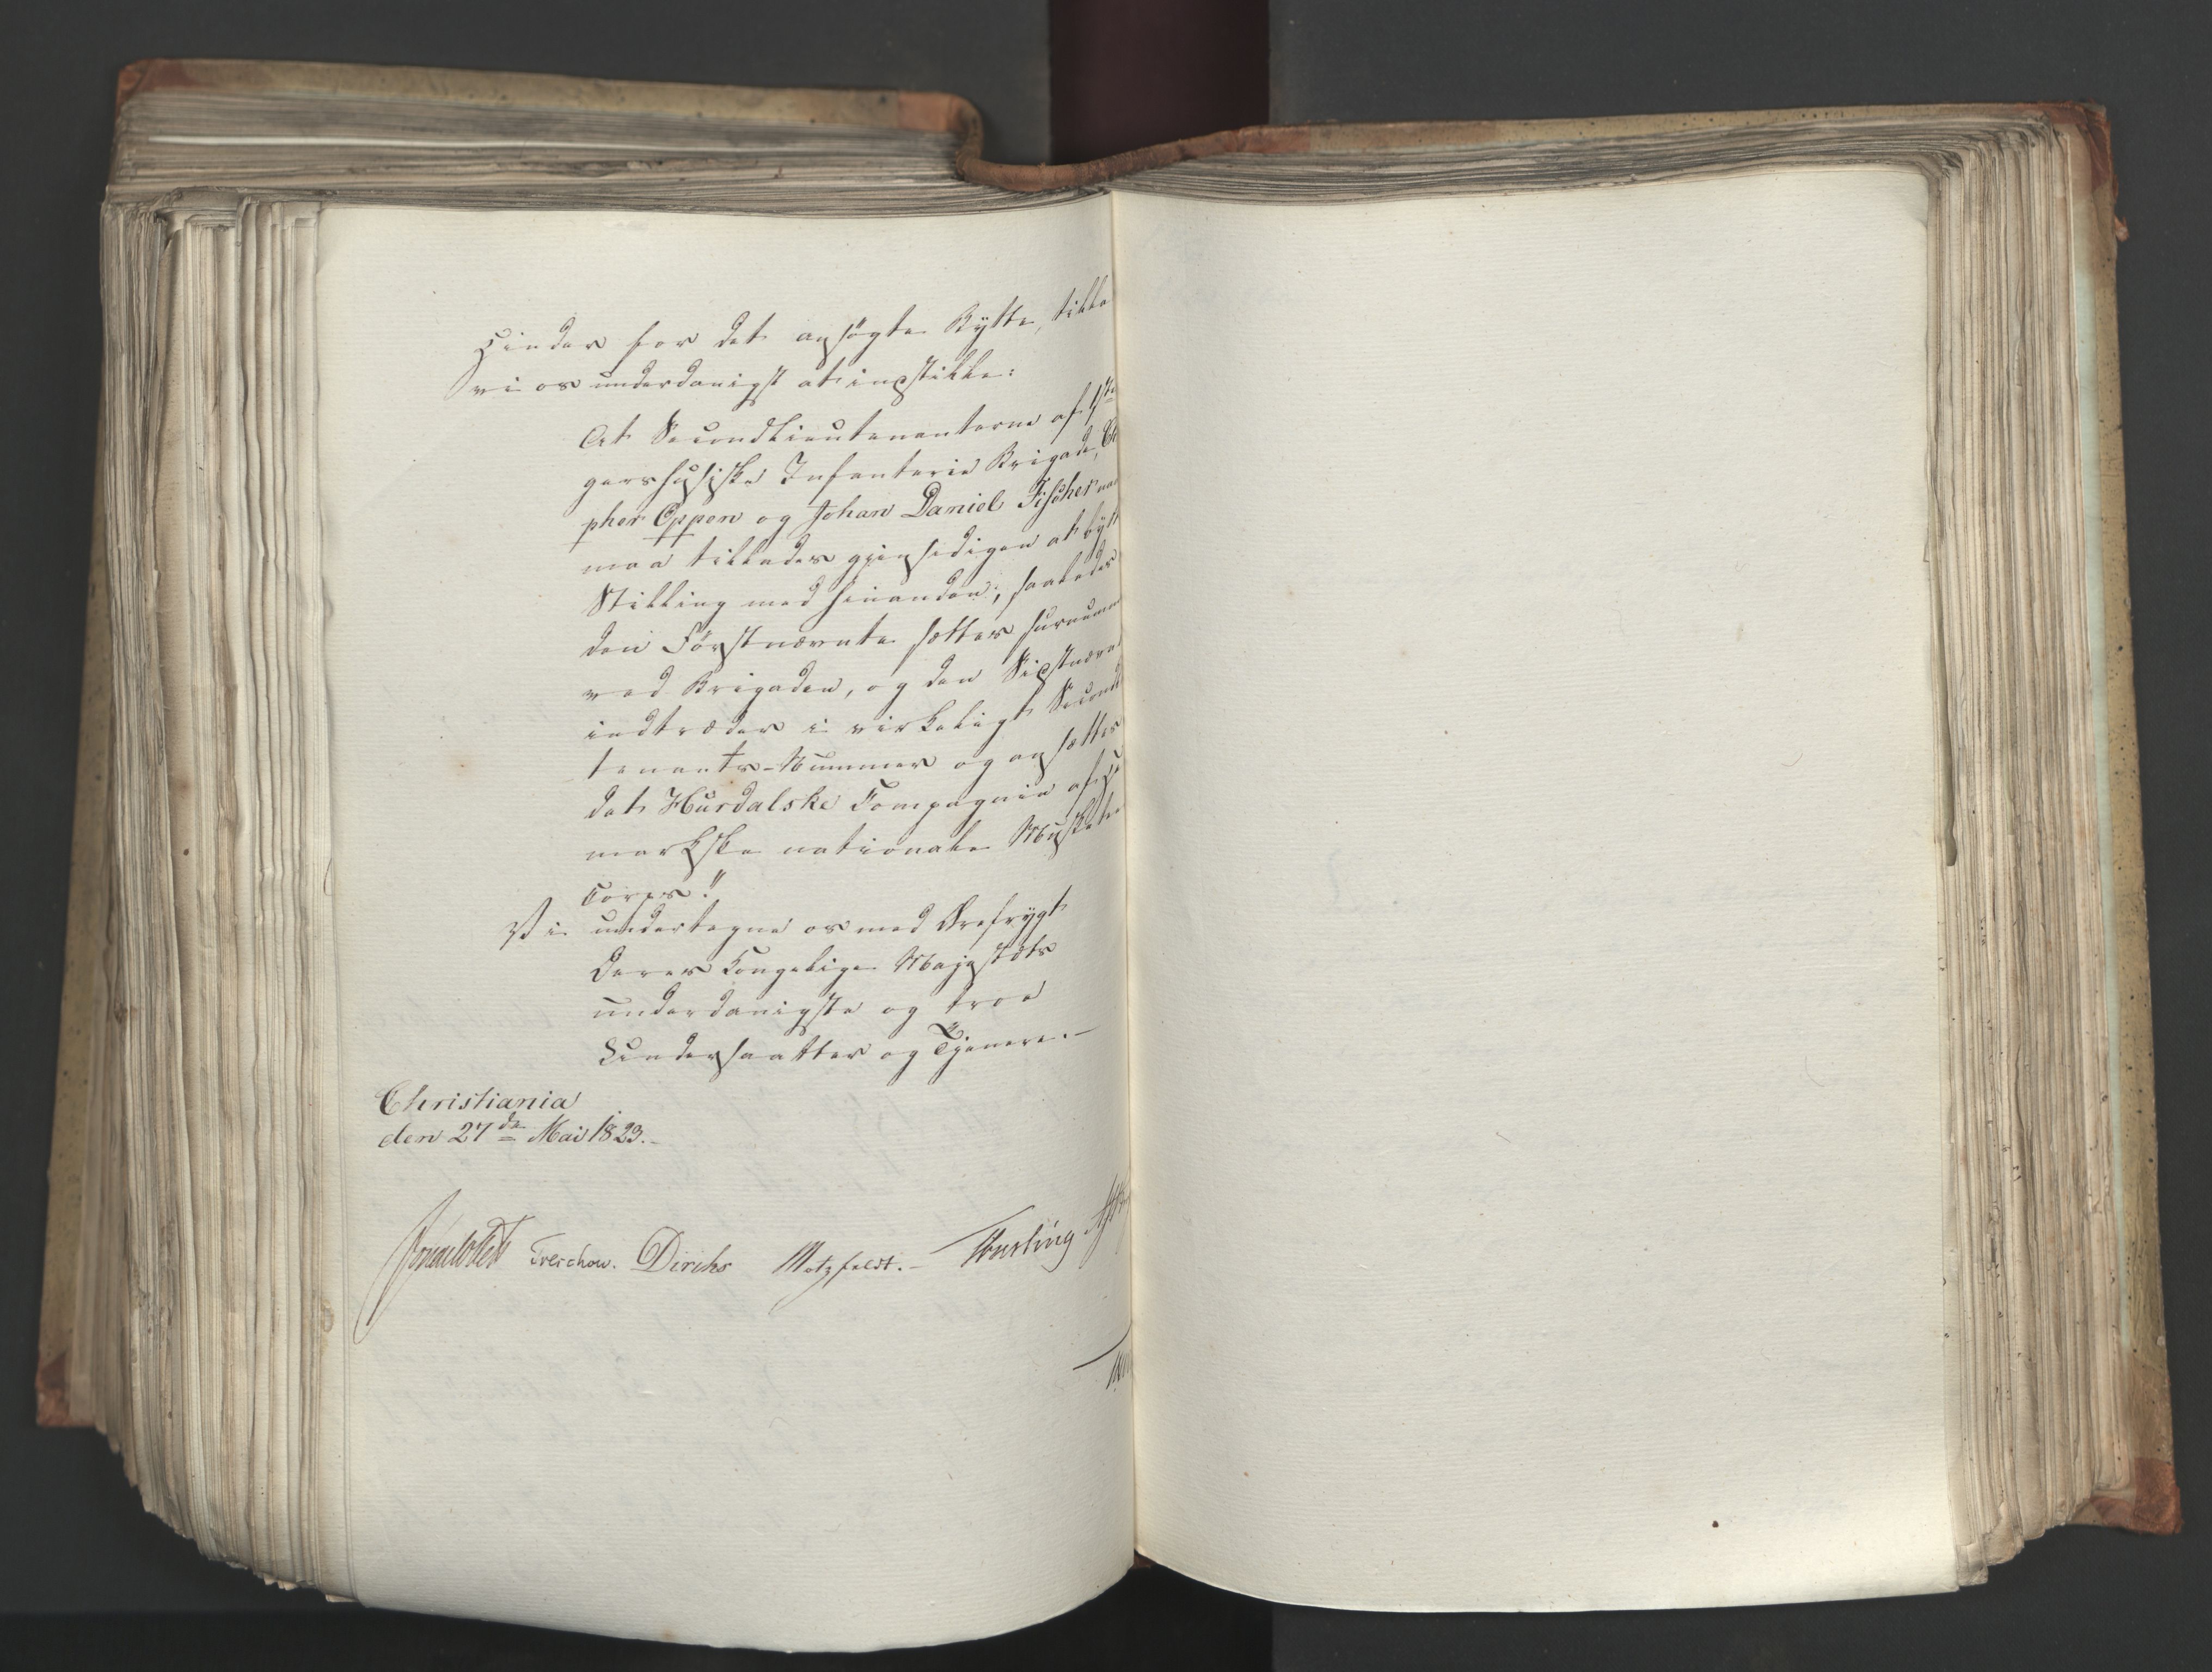 Hinder for det ansøgte Bytte, tilla
vi os underdanigst at indstille:
At Secondlieutenanterne af 1ste
gershusiske Infanterie Brigade, 
pher Oppen og Johan Daniel Fischer
maa tillades gjensidigen at bytt
Stilling med hinanden, saaledes
den Førstnævnte sættes surnumm
ved Brigaden, og den Sidstnævn
indtræder i virkeligt Second
tenants-Nummer og ansættes
det Hurdalske Compagnie af
markske nationale Musketeer
Corps."
Vi undertegne os med Ærefrygt
Deres Kongelige Majestæts
underdanigste og troe
Undersaatter og Tjenere.-
Christiania
den 27de Mai 1823.-
Treschow. Diriks Motzfeldt.-